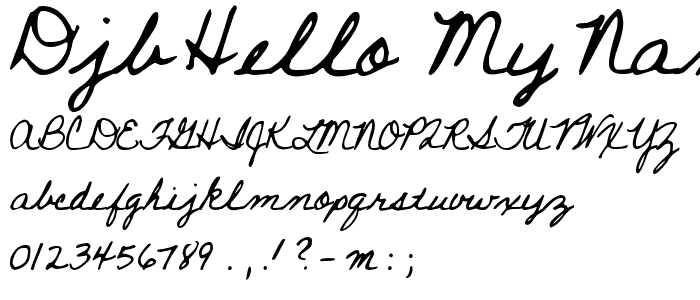 Djb Hello My Nam
ABCDEFGHIJKLMNOPQRSTUVWXYZ
abcdefghijklmnopqrstuvwxyz
0123456789 . , ! ? - m : ;